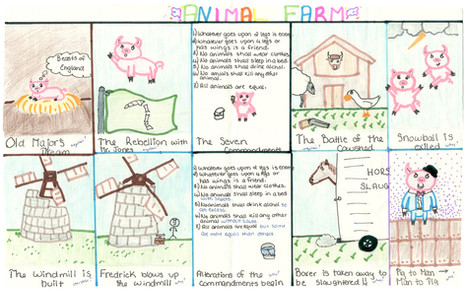 ANIMAL FARM
Beasts of
England
Old Major's
Dream
The Rebellion with
Mr. Jones
1) Whatever goes upon 2 legs is enemy
2) Whatever goes upon 4 legs or
has wings is a friend.
3) No animals shall wear clothes.
4) No animals shall sleep in a bed
5) No animals shall drink alcohol.
6) No animals shall kill any other
animal.
7) All animals are equal.
The Seven
Commandments
The Battle of the
Cowshed
Snowball is
exiled
The Windmill is
built
Fredrick blows up
the windmill
1) Whatever goes upon 2 legs is enemy
2) Whatever goes upon 4 legs or
has wings is a friend.
3) No animals shall wear clothes.
4) No animals shall sleep in a bed
with sheets.
5) No animals shall drink alcohol to
an excess.
6) No animals shall kill any other
animal without cause.
7) All animals are equal but some
are more equal than others.
Alterations of the
commandments begin
HORS
SLAUG
Boxer is taken away to
be slaughtered!!
Pig to Man
Man to Pig